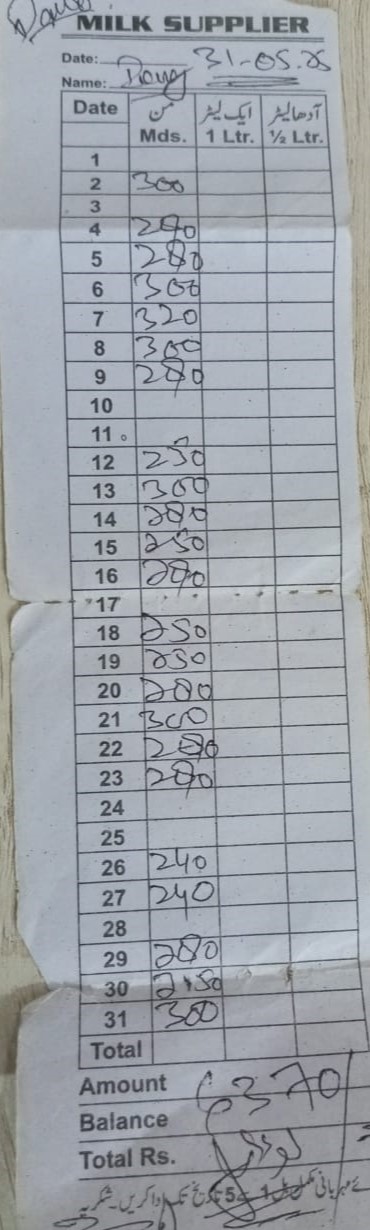 MILK SUPPLIER
Date: 31-05-25
Name:
Date من Mds. ایک لیٹر 1 Ltr. آدھا لیٹر ½ Ltr.
1
2 300
3
4 280
5 280
6 300
7 320
8 300
9 280
10
11
12 250
13 300
14 280
15 250
16 280
17
18 250
19 250
20 280
21 300
22 280
23 280
24
25
26 240
27 240
28
29 280
30 250
31 300
Total
Amount 6370
Balance
Total Rs.
مہربانی مکمل بل 1 سے 5 تاریخ تک ادا کریں شکریہ